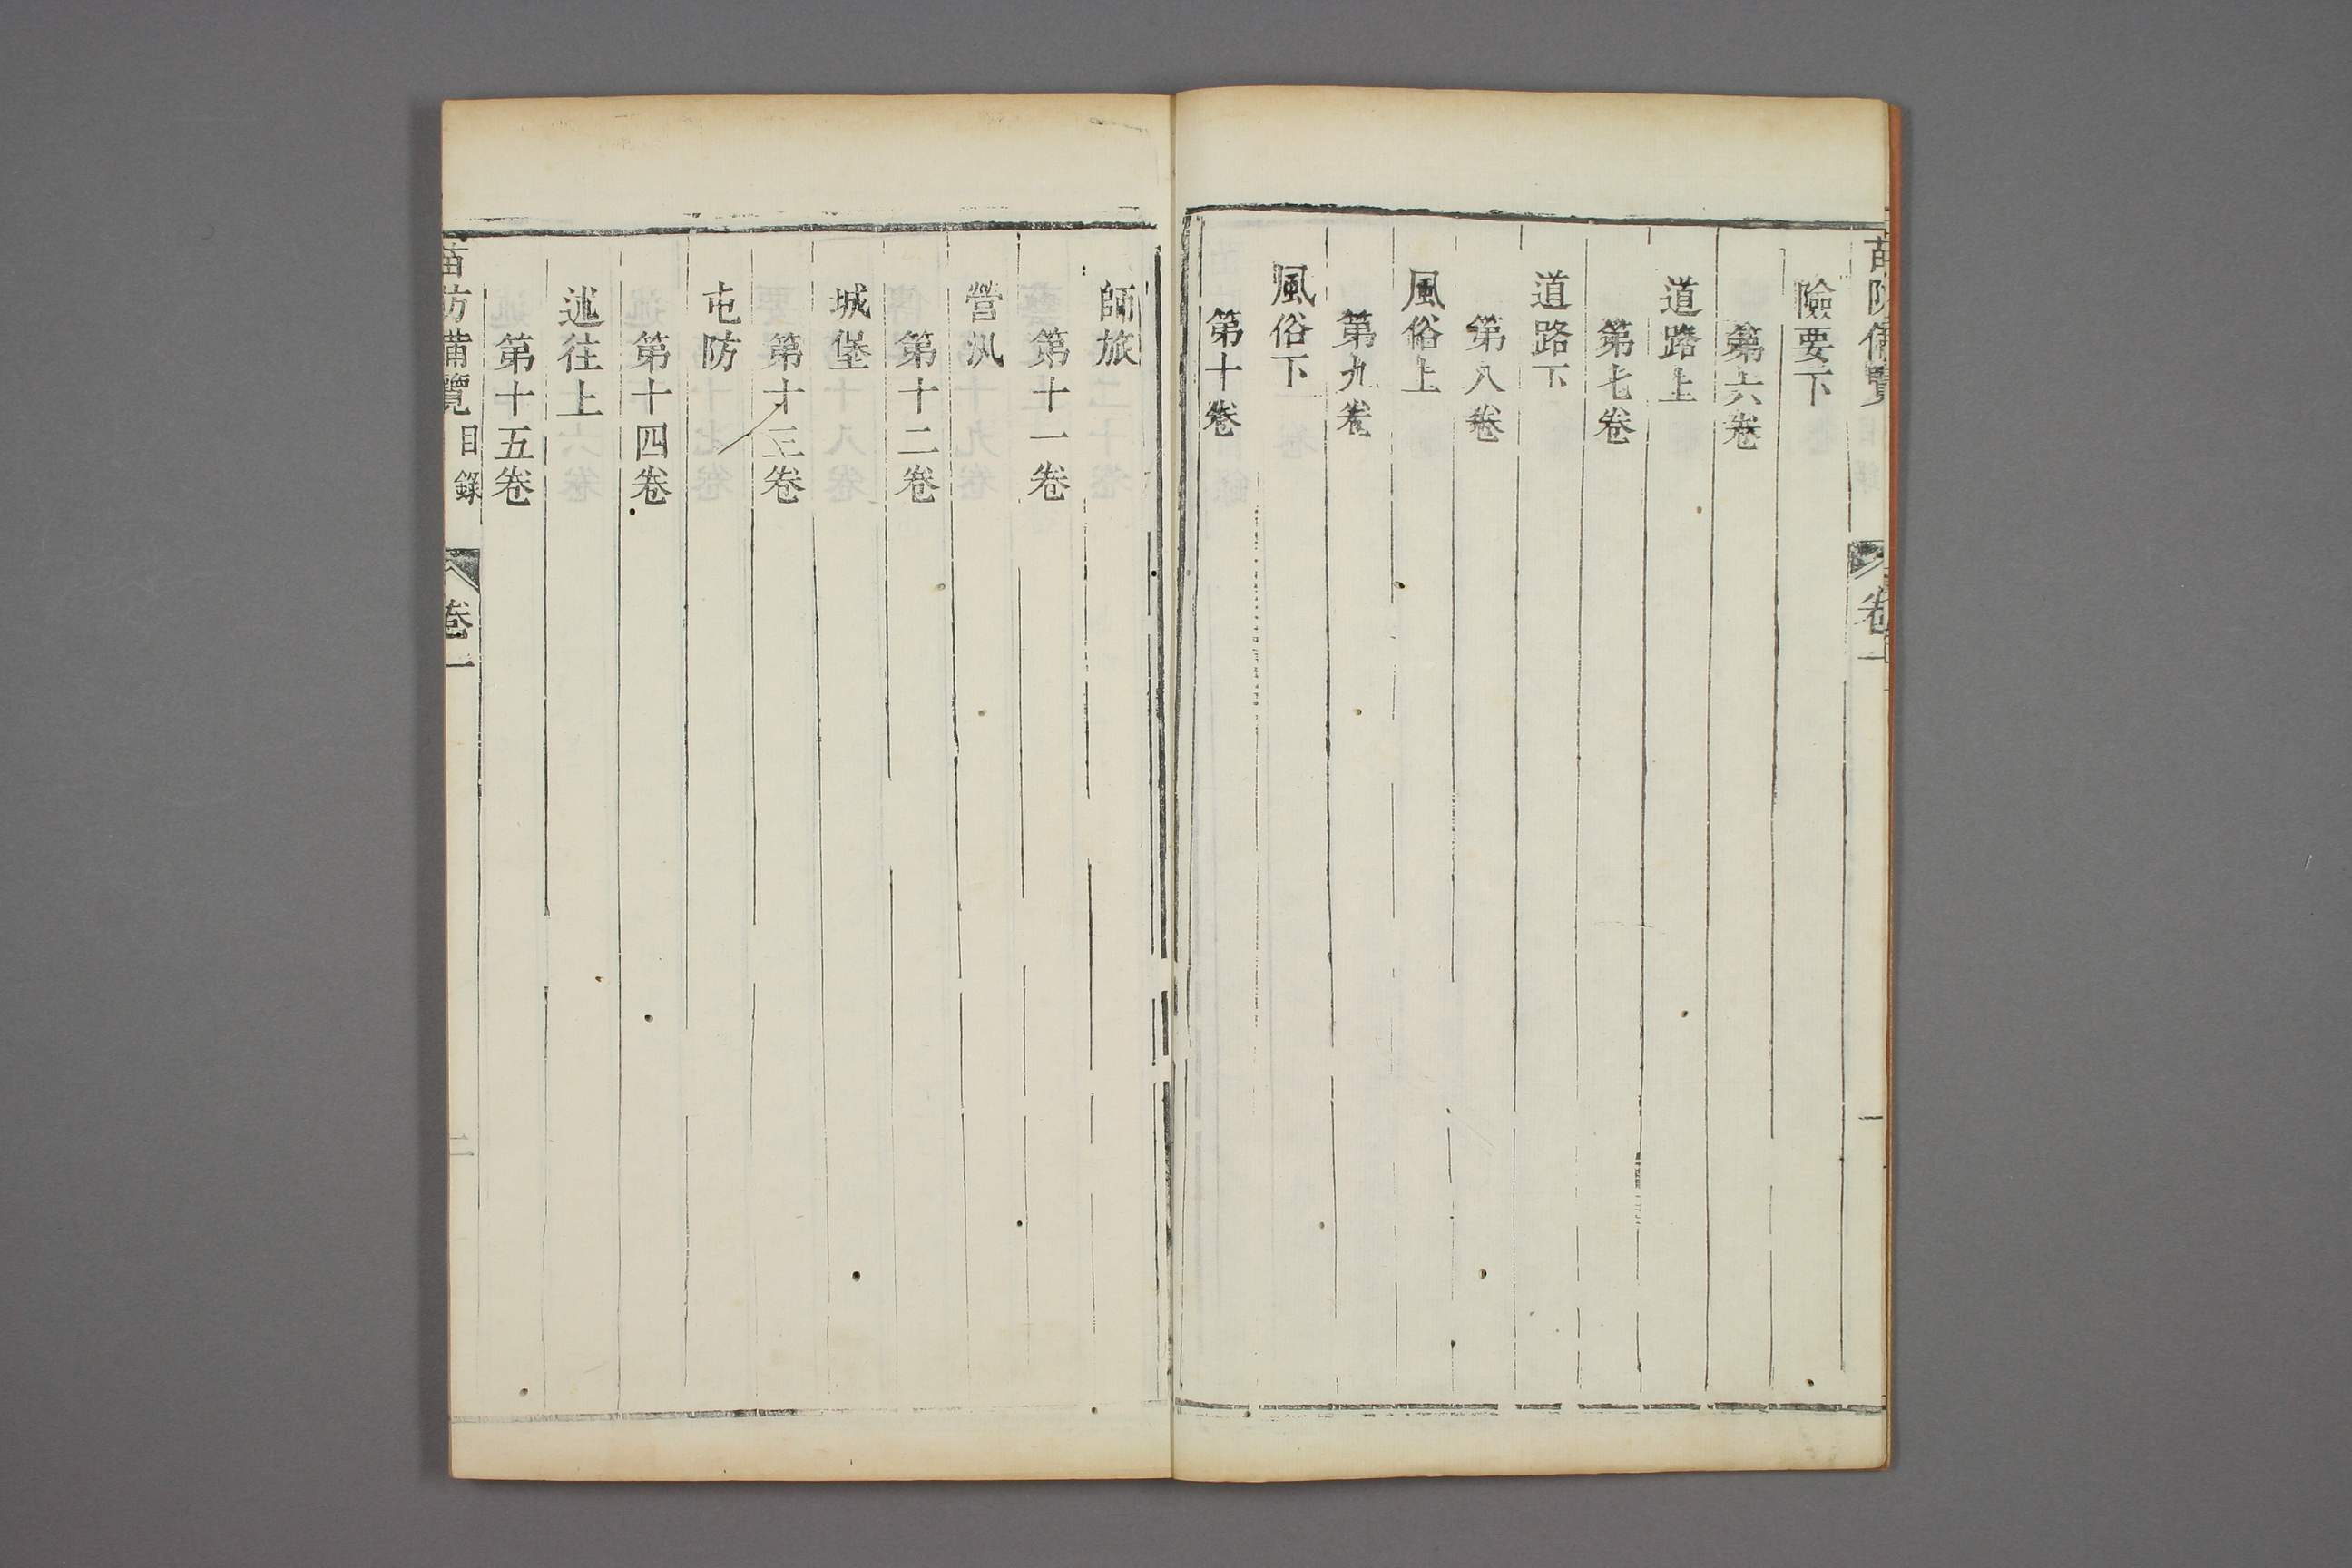 苗防備覽
卷一
一
險要下
第六卷
道路上
第七卷
道路下
第八卷
風俗上
第九卷
風俗下
第十卷
師旅
第十一卷
營汛
第十二卷
城堡
第十三卷
屯防
第十四卷
述往上
第十五卷
苗防備覽
目錄
卷一
二